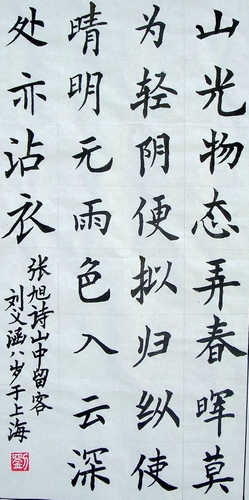 山光物态弄春晖莫
为轻阴便拟归纵使
晴明无雨色入云深
处亦沾衣
张旭诗山中留客
刘义涵八岁于上海
劉